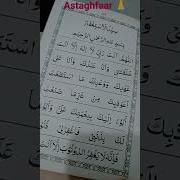 Astaghfaar
سَيِّدُ الْاِسْتِغْفَار
بِسْمِ اللهِ الرَّحْمٰنِ الرَّحِيْمِ
اَللّٰهُمَّ اَنْتَ رَبِّيْ لَا اِلٰهَ اِلَّا اَنْتَ
خَلَقْتَنِيْ وَاَنَا عَبْدُكَ وَاَنَا عَلٰى
عَهْدِكَ وَوَعْدِكَ مَا اسْتَطَعْتُ
اَعُوْذُبِكَ مِنْ شَرِّ مَا صَنَعْتُ
اَبُوْءُ لَكَ بِنِعْمَتِكَ عَلَيَّ وَاَبُوْءُ
لَكَ بِذَنْبِيْ فَاغْفِرْلِيْ
فَاِنَّهٗ لَا يَغْفِرُ الذُّنُوْبَ اِلَّا اَنْتَ